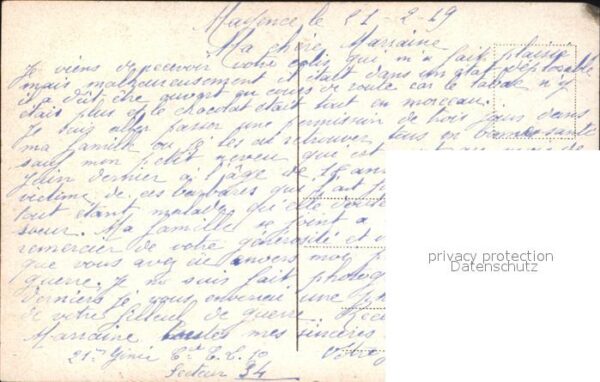 Mayence le 21-2-19
Ma chère Marraine
Je viens de recevoir votre colis qui m'a fait plaisir
mais malheureusement il était dans un état déplorable
il a dût être ouvert au cours de route car le tabac n'y
était plus et le chocolat était tout en morceau.
Je suis aller passer une permission de trois jours dans
ma famille ou je les ai retrouver tous en bonne santé
sauf mon petit neveu qui est
Juin dernier a l'âge de 18 ans
victime de ces barbares que
tout étant malade qu'elle
soeur. Ma famille se joint a
remercier de votre générosité et
que vous avez envers moi
guerre. Je me suis fait
derniers je vous enverrai une
de votre filleul de guerre.
Marraine toutes mes sincères
21e Génie Cie
Secteur 34
privacy protection
Datenschutz